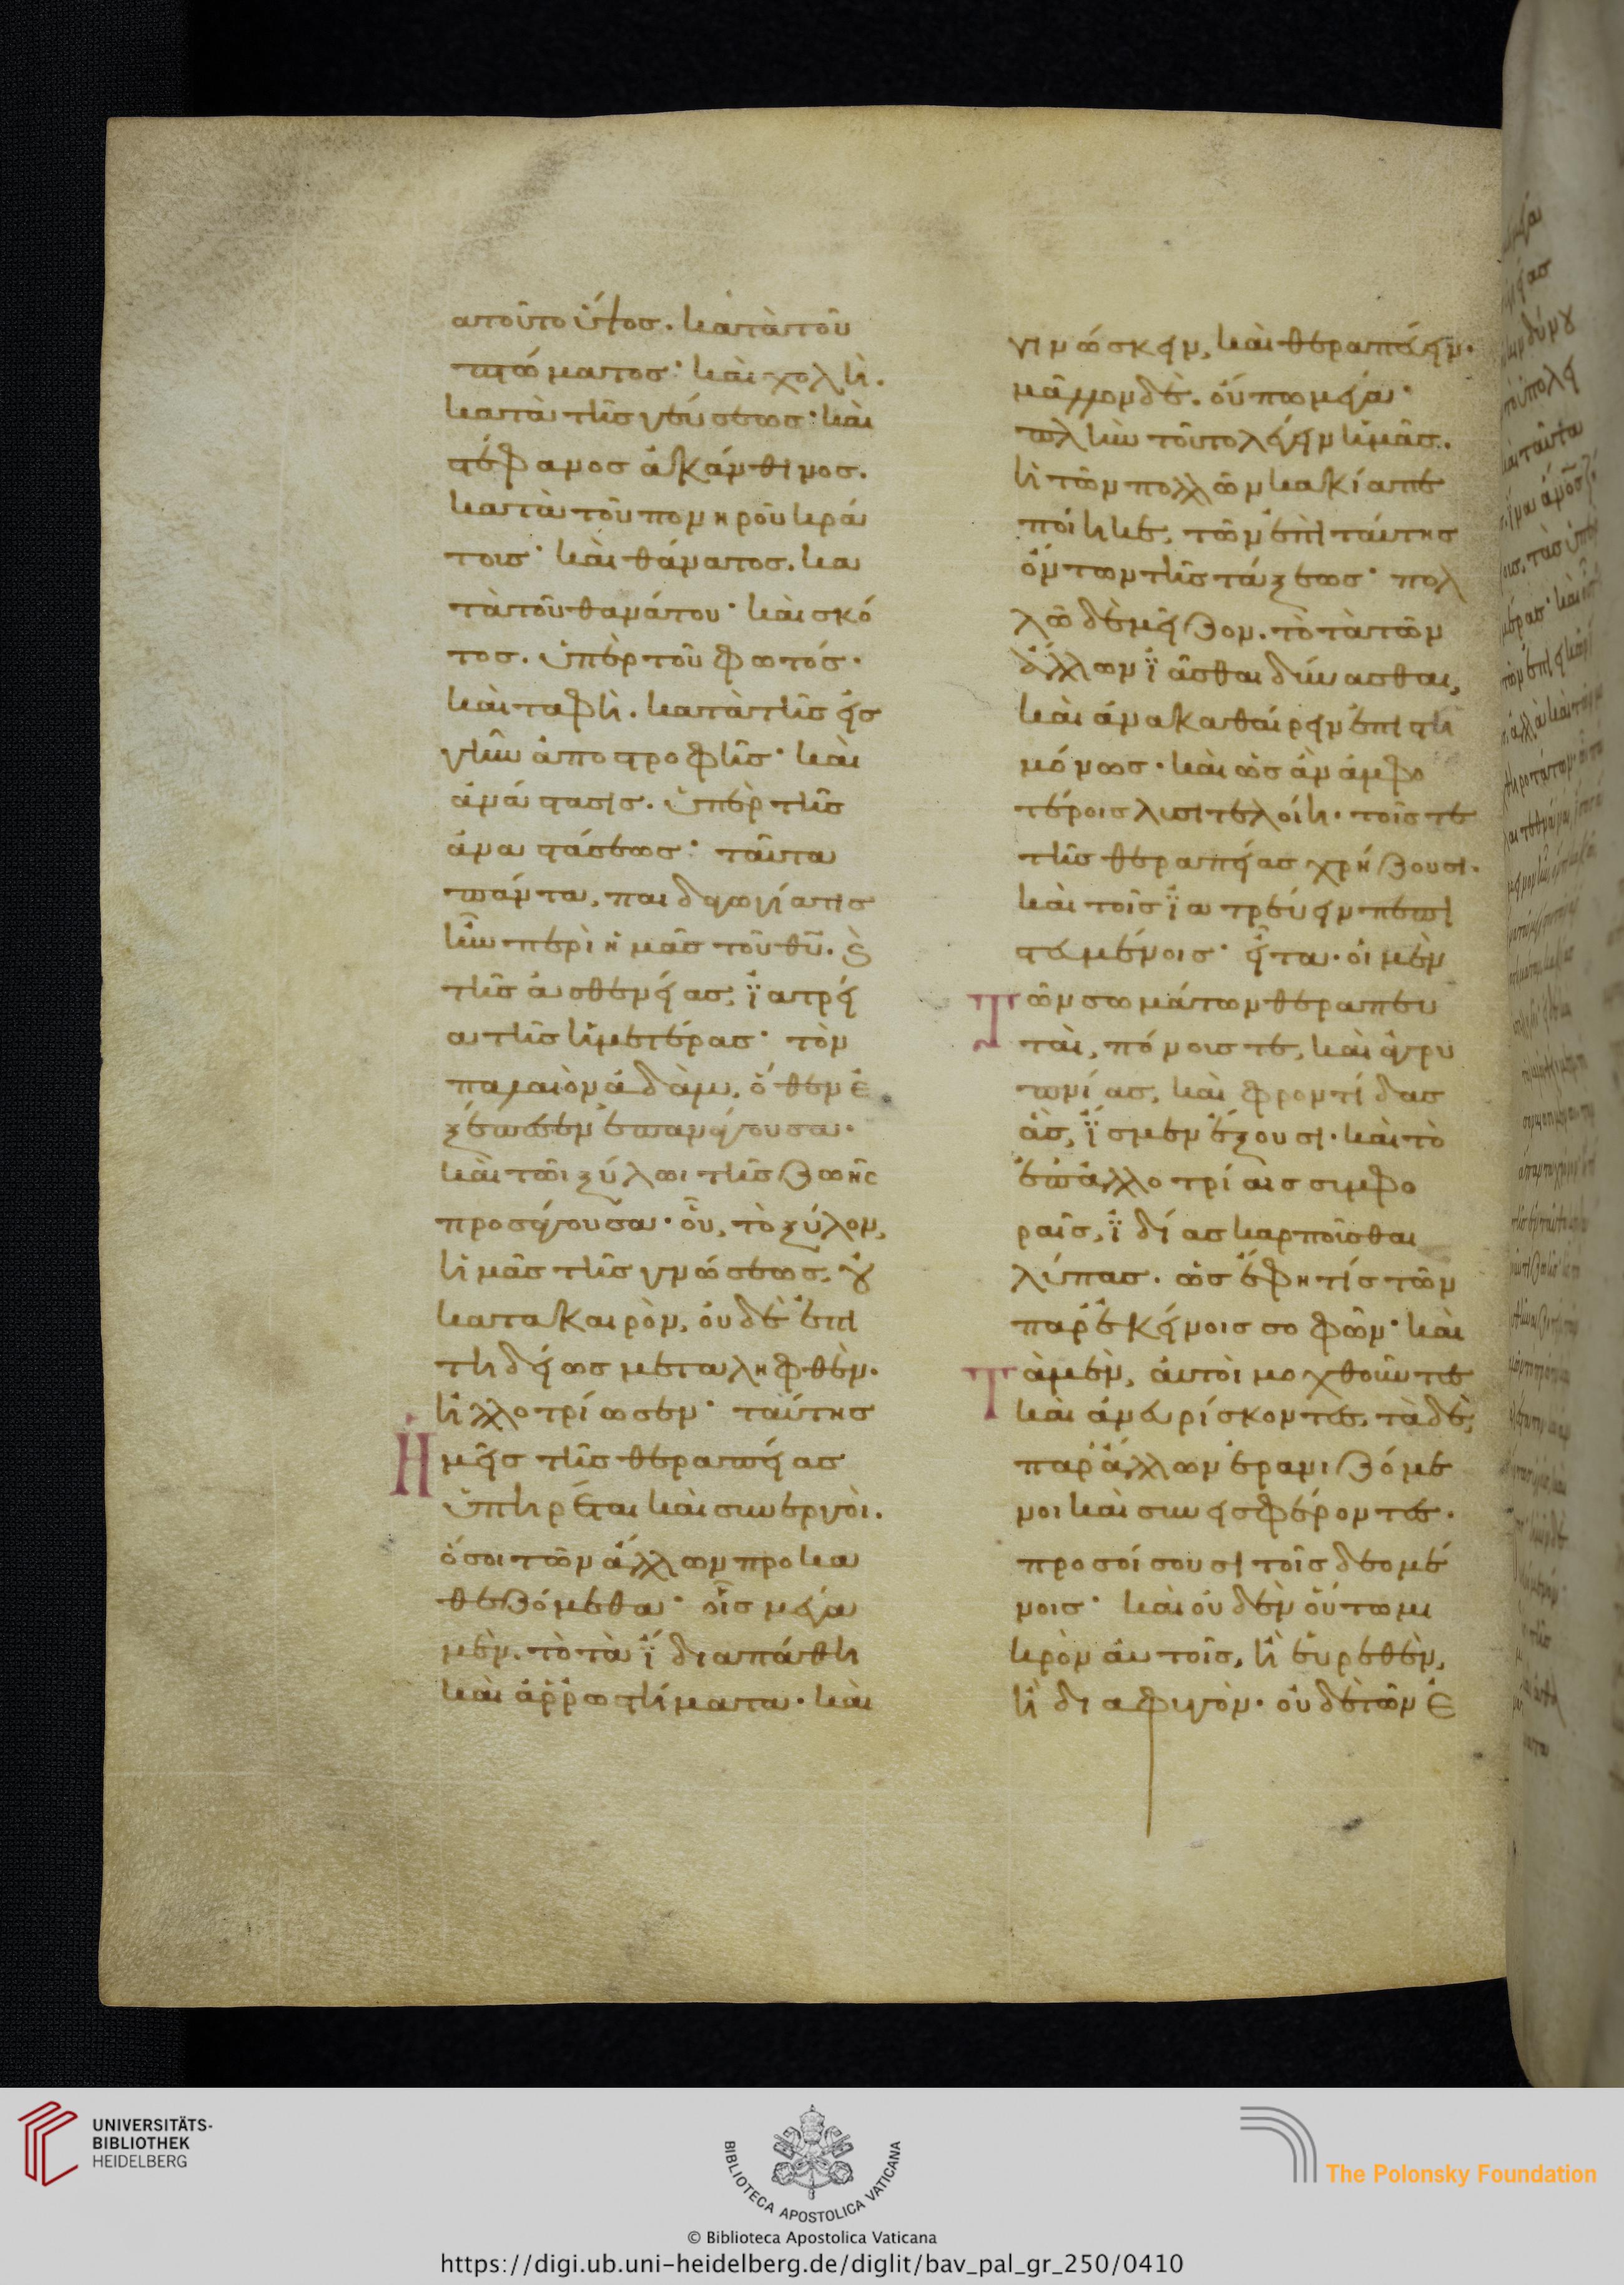 ατοῦτο ὕψος. κατὰ τοῦ
πτώματος· καὶ χολὴ.
κατὰ τῆς γεύσεως· καὶ
στέφανος ἀκάνθινος.
κατὰ τοῦ πονηροῦ κρά
τους· καὶ θάνατος. κα
τὰ τοῦ θανάτου· καὶ σκό
τος. ὑπὲρ τοῦ φωτός·
καὶ ταφὴ. κατὰ τῆς εἰς
γῆν ἀποστροφῆς· καὶ
ἀνάστασις. ὑπὲρ τῆς
ἀναστάσεως· ταῦτα
πάντα, παιδαγωγία τις
ἦν περὶ ἡμᾶς τοῦ θῦ. ϗ
τῆς ἀσθενείας, ἰατρεί
α τῆς ἡμετέρας· τὸν
παλαιὸν ἀδὰμ, ὅθεν ἐ
ξέπεσεν ἐπανάγουσα·
καὶ τῶι ξύλωι τῆς ζωῆς
προσάγουσα· οὗ, τὸ ξύλον,
ἡμᾶς τῆς γνώσεως, οὐ
κατα καιρὸν, οὐδὲ ἐπι
τηδείως μεταληφθὲν.
ἠλλοτρίωσεν· ταύτης
ἡμεῖς τῆς θεραπείας
ὑπηρέται καὶ συνεργοὶ.
ὅσοι τῶν ἄλλων προκα
θεζόμεθα· οἷς μέγα
μὲν. τὸ τὰ ἴδια πάθη
καὶ ἀρρωστήματα· καὶ
γινώσκειν, καὶ θεραπεύειν.
μᾶλλον δὲ. οὔπω μέγα·
πλὴν τοῦτο λέγειν ἡμᾶς.
ἡ τῶν πολλῶν κακία πε
ποίηκε, τῶν ἐπὶ ταύτης
ὄντων τῆς τάξεως· πολ
λῶ δὲ μεῖζον. τὸ τὰ τῶν
ἄλλων ἰᾶσθαι δύνασθαι,
καὶ ἀνακαθαίρειν ἐπιστη
μόνως· καὶ ὡς ἂν ἀμφο
τέροις λυσιτελοίη· τοῖς τε
τῆς θεραπείας χρήζουσι.
καὶ τοῖς ἰατρεύειν πεπι
στευμένοις· εἶτα· οἱ μὲν
τῶν σωμάτων θεραπευ
ταὶ, πόνους τε, καὶ ἀγρυ
πνίας, καὶ φροντίδας
ἃς, ἴσμεν ἕξουσι. καὶ τὸ
ἐπ ἀλλοτρίαις συμφο
ραῖς, ἰδίας καρποῦσθαι
λύπας. ὡς ἔφη τίς τῶν
παρ ἐκείνοις σοφῶν· καὶ
τὰ μὲν, αὐτοὶ μοχθοῦντες
καὶ ἀνευρίσκοντες. τὰ δὲ,
παρ ἄλλων ἐρανιζόμε
νοι καὶ συνεισφέροντες.
προσοίσουσι τοῖς δεομέ
νοις· καὶ οὐδὲν οὕτω μι
κρὸν αὐτοῖς, ἢ εὑρεθὲν,
ἢ διαφυγὸν. οὐδὲ τῶν ἐ
UNIVERSITÄTS-
BIBLIOTHEK
HEIDELBERG
BIBLIOTECA APOSTOLICA VATICANA
© Biblioteca Apostolica Vaticana
The Polonsky Foundation
https://digi.ub.uni-heidelberg.de/diglit/bav_pal_gr_250/0410